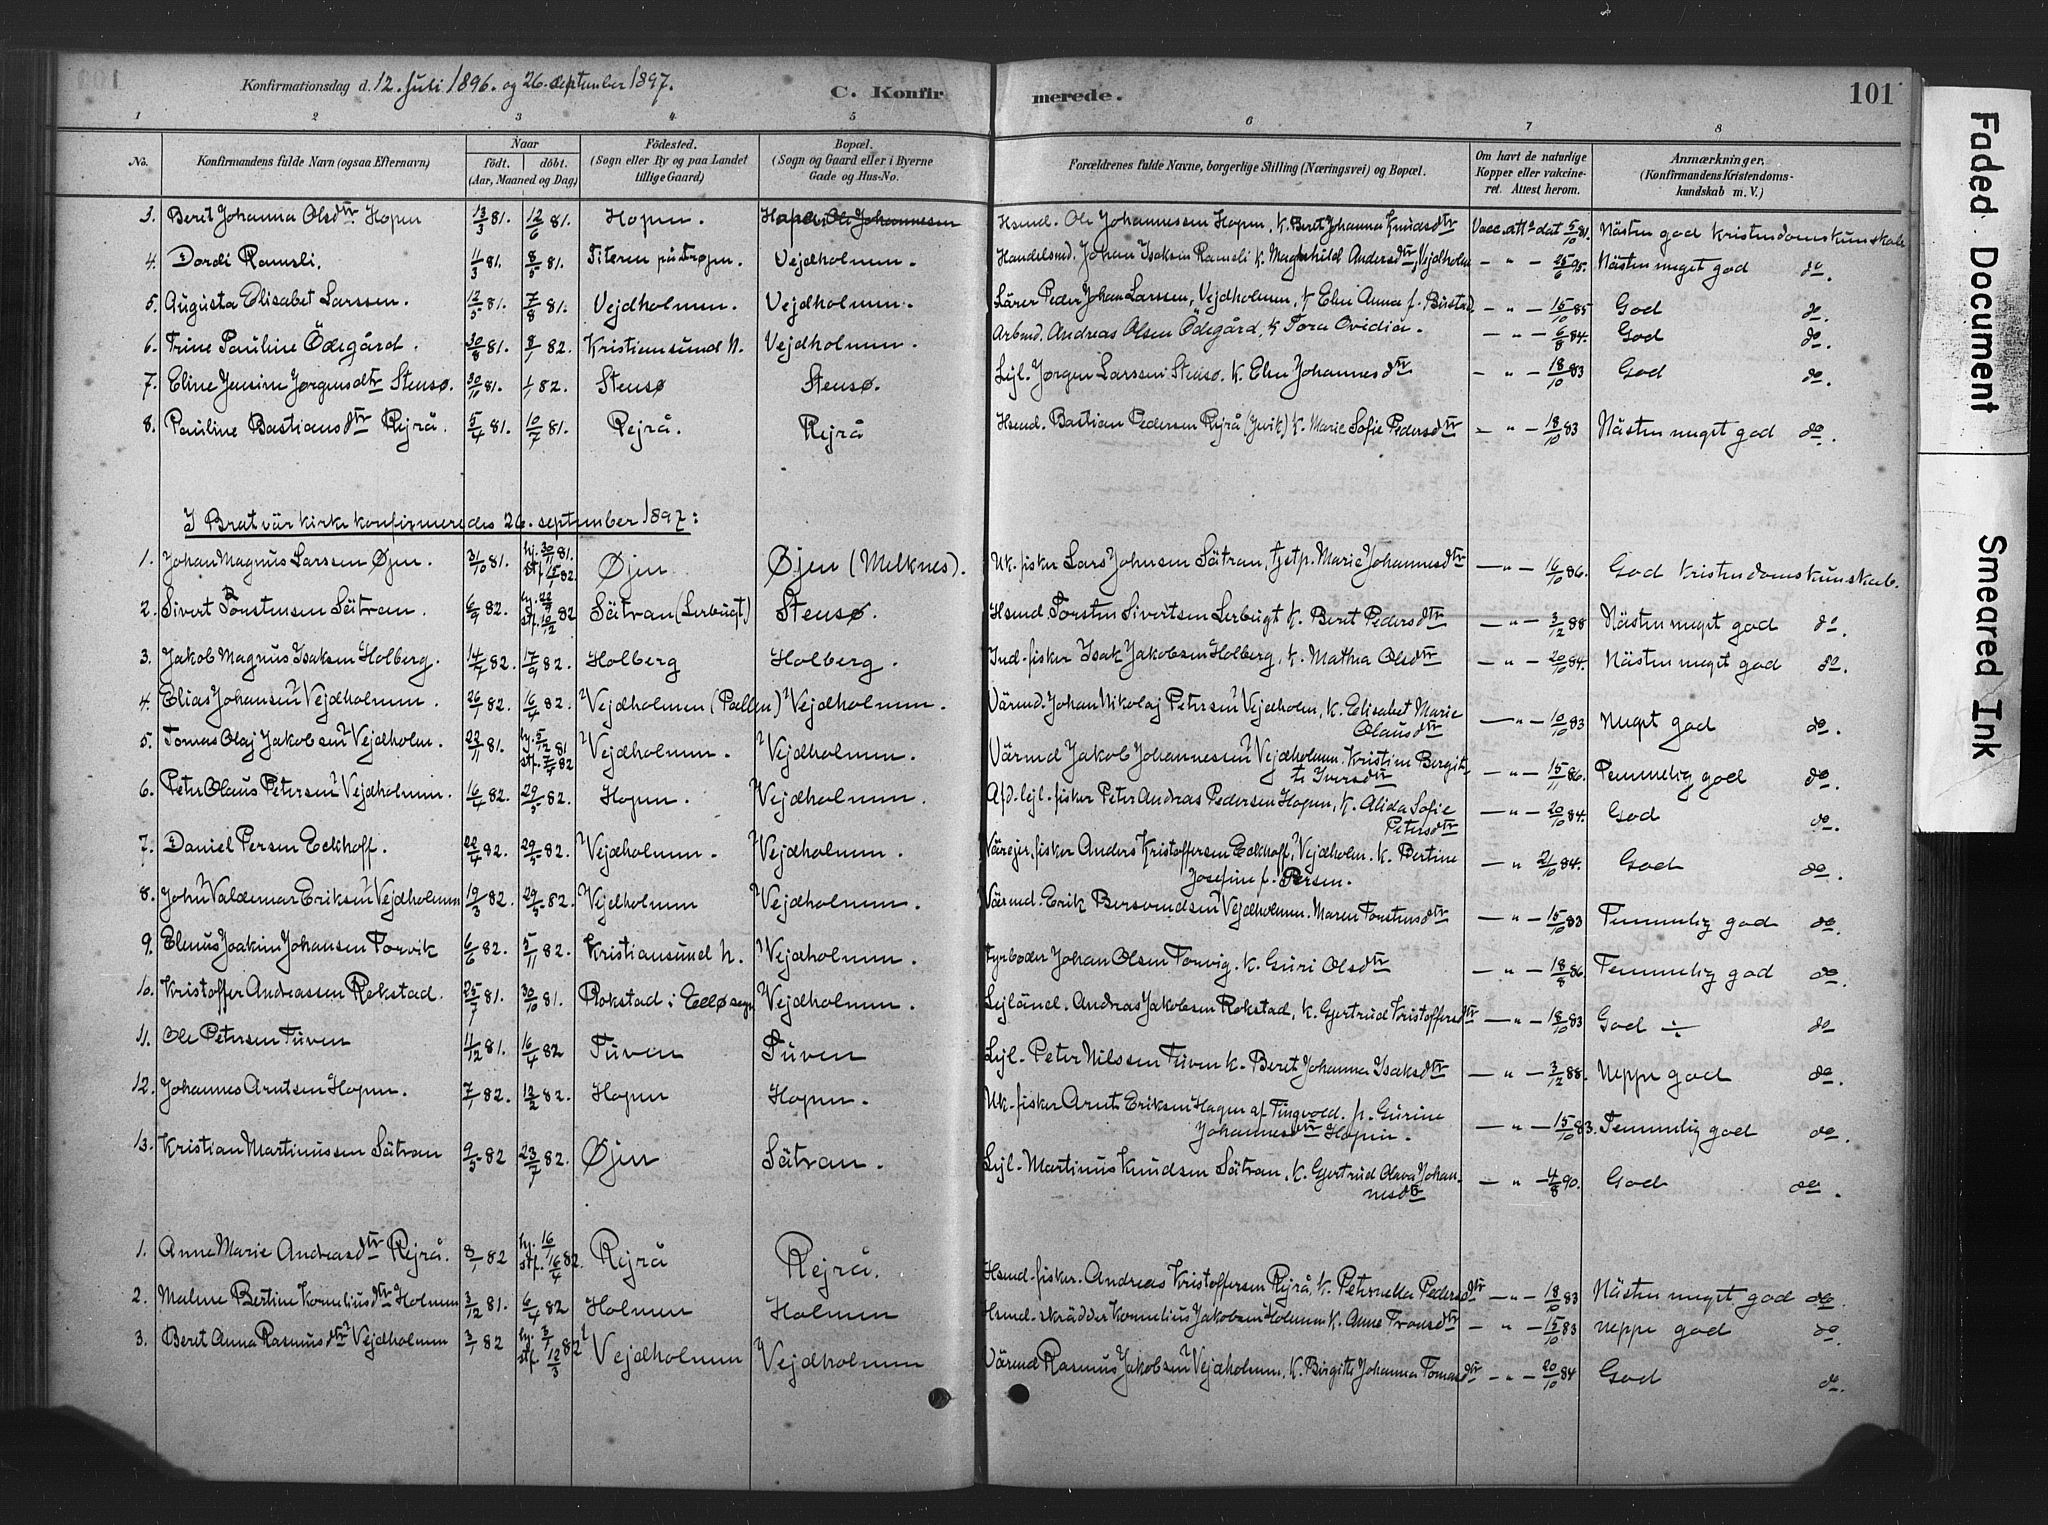 Konfirmationsdag d. 12. Juli 1896. og 26. september 1897.
C. Konfirmerede.
101
1 2 3 4 5 6 7 8
No. Konfirmandens fulde Navn (ogsaa Efternavn) Naar født. døbt. (Aar, Maaned og Dag) Fødested. (Sogn eller By og paa Landet tillige Gaard) Bopæl. (Sogn og Gaard eller i Byerne Gade og Hus-No. Forældrenes fulde Navne, borgerlige Stilling (Næringsvei) og Bopæl. Om havt de naturlige Kopper eller vakcineret. Attest herom. Anmærkninger. (Konfirmandens Kristendomskundskab m. V.)
3. Berit Johanna Olsdtr Hopen 13/3 81. 12/6 81. Hopen. Hopen Ole Johannessen Hsmd. Ole Johannessen Hopen, k. Berit Johanna Knudsdtr Vacc. att. dat 5/10 81. Nästen god kristendomskunskab
4. Dordi Rameli. 11/3 81. 8/5 81. Titeren på Frøjen. Vejdholmen. Handelsmd. Johan Isaksen Rameli k. Magnhild Andersdtr, Vejdholm — " — 25/6 95. Nästen meget god do.
5. Augusta Elisabet Larssen. 12/5 81. 7/8 81. Vejdholmen. Vejdholmen. Lärer Peder Johan Larssen, Vejdholmen, k Elen Anna f. Bustad — " — 15/10 85 God do.
6. Trine Pauline Ödegård. 30/8 81. 8/1 82. Kristiansund N. Vejdholmen. Arbmd. Andreas Olsen Ödegård, k Tora Ovidia. — " — 6/8 84. God do.
7. Eline Jensine Jørgensdtr Stensø. 30/10 81. 1/1 82. Stensø Stensø. Lejl. Jørgen Larssen Stensø. k. Elen Johannesdtr — " — 18/10 83 God do.
8. Pauline Bastiansdtr Rejrå. 5/4 81. 10/7 81. Rejrå. Rejrå Hsmd. Bastian Pedersen Rejrå k. Marie Sofie Pedersdtr — " — 18/10 83 Nästen meget god do.
I Bratvär kirke konfirmeredes 26. september 1897:
1. Johan Magnus Larssen Øjen. 31/10 81. hj. 30/11 81. stf. 15/1 82. Øjen Øjen (Melknes). Uk. fisker Lars Johnsen Sätran, tjstp. Marie Johannesdtr — " — 16/10 86. God kristendomskunskab.
2. Sivert Torstensen Sätran. 6/9 82. hj. 22/9 stf. 10/12 82 Sätran (Lerbugt) Stensø. Hsmd. Torsten Sivertsen Lerbugt k. Berit Pedersdtr — " — 3/12 88 Nästen meget god do.
3. Jakob Magnus Isaksen Holberg. 14/7 82. 17/9 82. Holberg Holberg. Ind. fisker Isak Jakobsen Holberg, k. Mathea Olsdtr — " — 20/10 84. Nästen meget god do.
4. Elias Johansen Vejdholmen. 26/1 82. 16/4 82. Vejdholmen (Pallen) Vejdholmen. Värmd. Johan Nikolaj Petersen Vejdholm, k. Elisabet Marie Olausdtr — " — 10/10 83 Meget god do.
5. Tomas Olaj Jakobsen Vejdholm. 22/11 81. hj. 5/12 81 stf. 7/4 82 Vejdholmen. Vejdholmen. Värmd Jakob Johannessen Vejdholmen. Kristine Bergitte Iversdtr — " — 15/11 86. Temmelig god do.
6. Peter Olaus Petersen Vejdholmen. 16/4 82. 29/5 82. Hopen. Vejdholmen. Afd. lejl. fisker Peter Andreas Pedersen Hopen, k. Alida Sofie Petersdtr — " — 20/10 84. God do.
7. Daniel Persen Eckhoff. 22/4 82. 29/5 82. Vejdholmen. Vejdholmen. Värejer, fisker Anders Kristoffersen Eckhoff, Vejdholm. k. Bertine Josefine f. Persen. — " 21/10 84. God do.
8. John Valdemar Eriksen Vejdholmen 19/3 82. 29/5 82. Vejdholmen Vejdholmen. Värmd. Erik Bersvendsen Vejdholmen. Maren Torstensdtr — " — 15/10 83 Temmelig god do.
9. Elenus Joakim Johansen Torvik 6/6 82. 5/11 82. Kristiansund N. Vejdholmen. Fyrbøder Johan Olsen Torvig. k. Guri Olsdtr — " — 18/8 86. Temmelig god do.
10. Kristoffer Andreassen Rokstad. 25/7 81. 30/10 81. Rokstad i Edø sogn Vejdholmen. Lejländ. Andreas Jakobsen Rokstad, k. Gjertrud Kristoffersdtr — " — 18/10 83 God ÷ do
11. Ole Petersen Tuven 11/12 81. 16/4 82 Tuven Tuven Lejl. Peter Nilssen Tuven k. Beret Johanna Isaksdtr — " — 3/12 88. Neppe god do.
12. Johannes Arntsen Hopen. 7/1 82. 12/2 82. Hopen Hopen. Uk. fisker Arnt Eriksen Hagen af Tingvold. p. Gurine Johannesdtr Hopen. — " — 15/10 83. Temmelig god do.
13. Kristian Martinussen Sätran 9/5 82 23/7 82. Øjen Sätran. Lejl. Martinus Knudsen Sätran, k. Gjertrud Olava Johannesdtr — " — 4/8 90. God do.
1. Anne Marie Andreasdtr Rejrå. 8/1 82 hj. 16/1 stf. 16/4 82. Rejrå Rejrå. Hsmd. fisker. Andreas Kristoffersen Rejrå, k. Peternella Pedersdtr — " — 18/10 83 Nästen meget god do.
2. Malene Bertine Korneliusdtr Holmen 3/12 81. 6/4 82 Holmen Holmen Hsmd. skrädder Kornelius Jakobsen Holmen k. Anne Tronsdtr — " — 15/10 83 Neppe god do.
3. Beret Anna Rasmusdtr Vejdholmen 3/1 82 hj. 3/1 stf. 12/3 82 Vejdholmen Vejdholmen Värmd Rasmus Jakobsen Vejdholmen, k. Birgitte Johanna Tomasdtr — " — 20/10 84 God do.
Faded Document
Smeared Ink